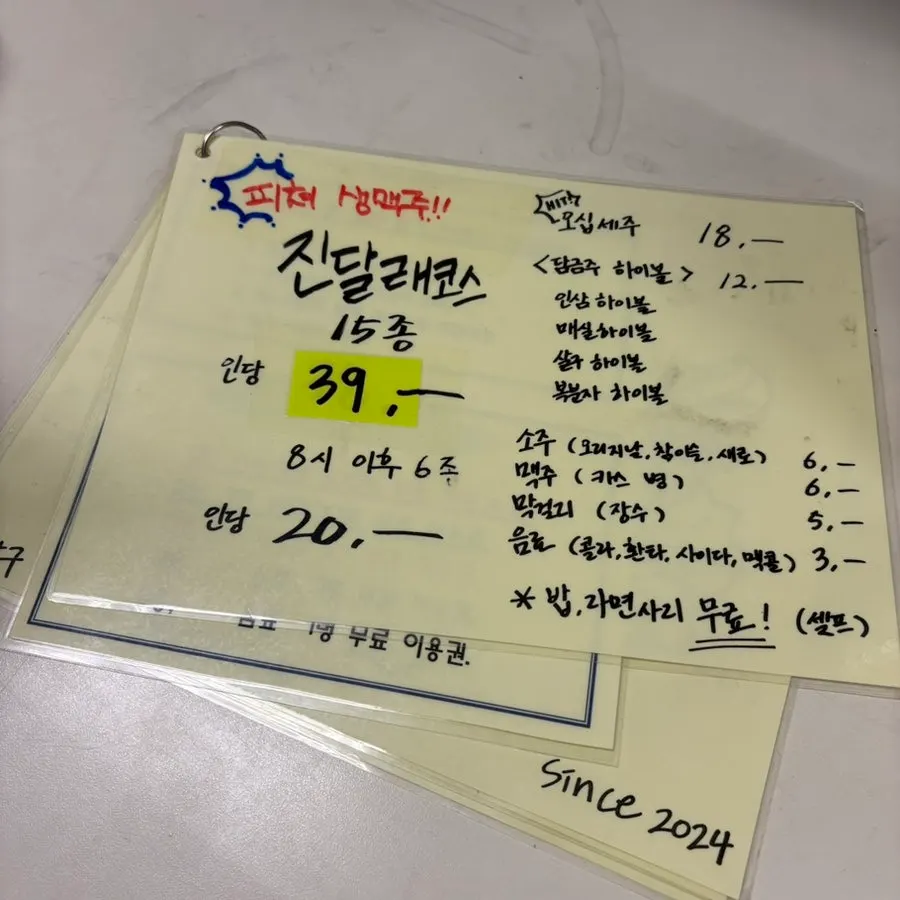 피쳐 생맥주!!
진달래코스
15종
인당 39.—
8시 이후 6종
인당 20.—
HIT!
오십세주 18.—
<담금주 하이볼> 12.—
인삼 하이볼
매실하이볼
살구 하이볼
복분자 하이볼
소주 (오리지날, 참이슬, 새로) 6.—
맥주 (카스 병) 6.—
막걸리 (장수) 5.—
음료 (콜라, 환타, 사이다, 맥콜) 3.—
* 밥, 라면사리 무료! (셀프)
1명 무료 이용권.
Since 2024